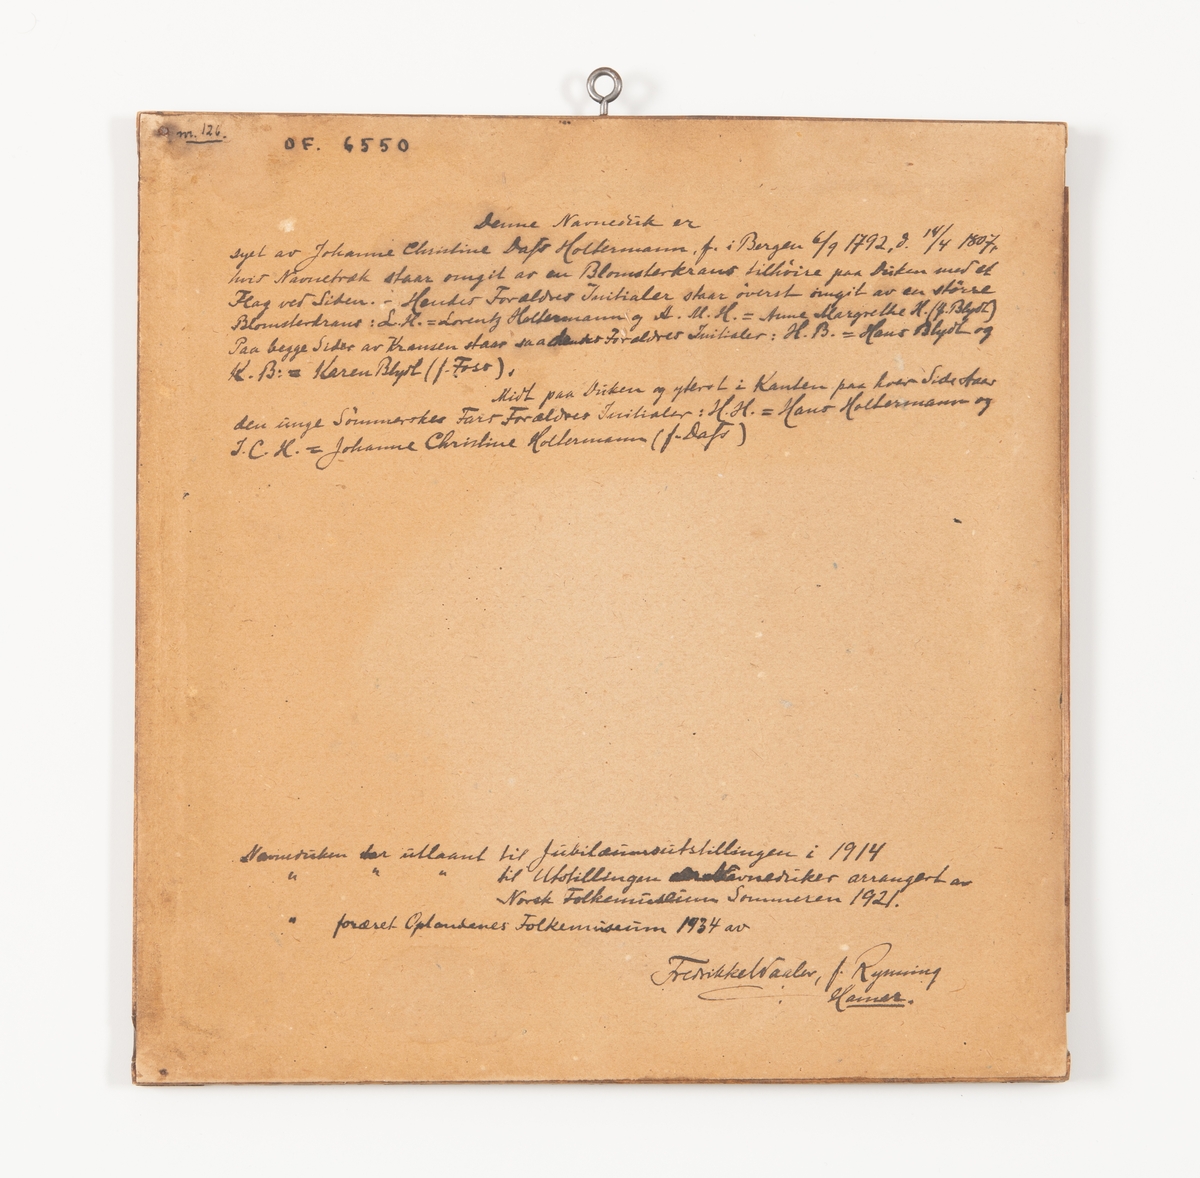 nr. 126.
OF. 6550
Denne Navneduk er
syet av Johanne Christine Dass Holtermann, f. i Bergen 6/9 1792, d. 14/4 1807,
hvis Navnetræk staar omgit av en Blomsterkrans tilhöire paa Duken med et
Flag ved Siden. - Hendes Forældres Initialer staar överst omgit av en större
Blomsterkrans: L. H. = Lorentz Holtermann og A. M. H. = Anne Margrethe H. (f. Blydt)
Paa begge Sider av Kransen staar saa Forældres Initialer: H. B. = Hans Blydt og
K. B: = Karen Blydt (f. Foss).
Midt paa Duken og yterst i Kanten paa hver Side staar
den unge Sömmerskes Fars Forældres Initialer: H. H. = Hans Holtermann og
J. C. H. = Johanne Christine Holtermann (f. Dass)
Navneduken har utlaant til Jubilæumsutstillingen i 1914
" " " til Utstillingen Navneduker arrangert av
Norsk Folkemuseum Sommeren 1921.
" foræret Oplandenes Folkemuseum 1934 av
Fredrikke Waaler, f. Rynning
Hamar.